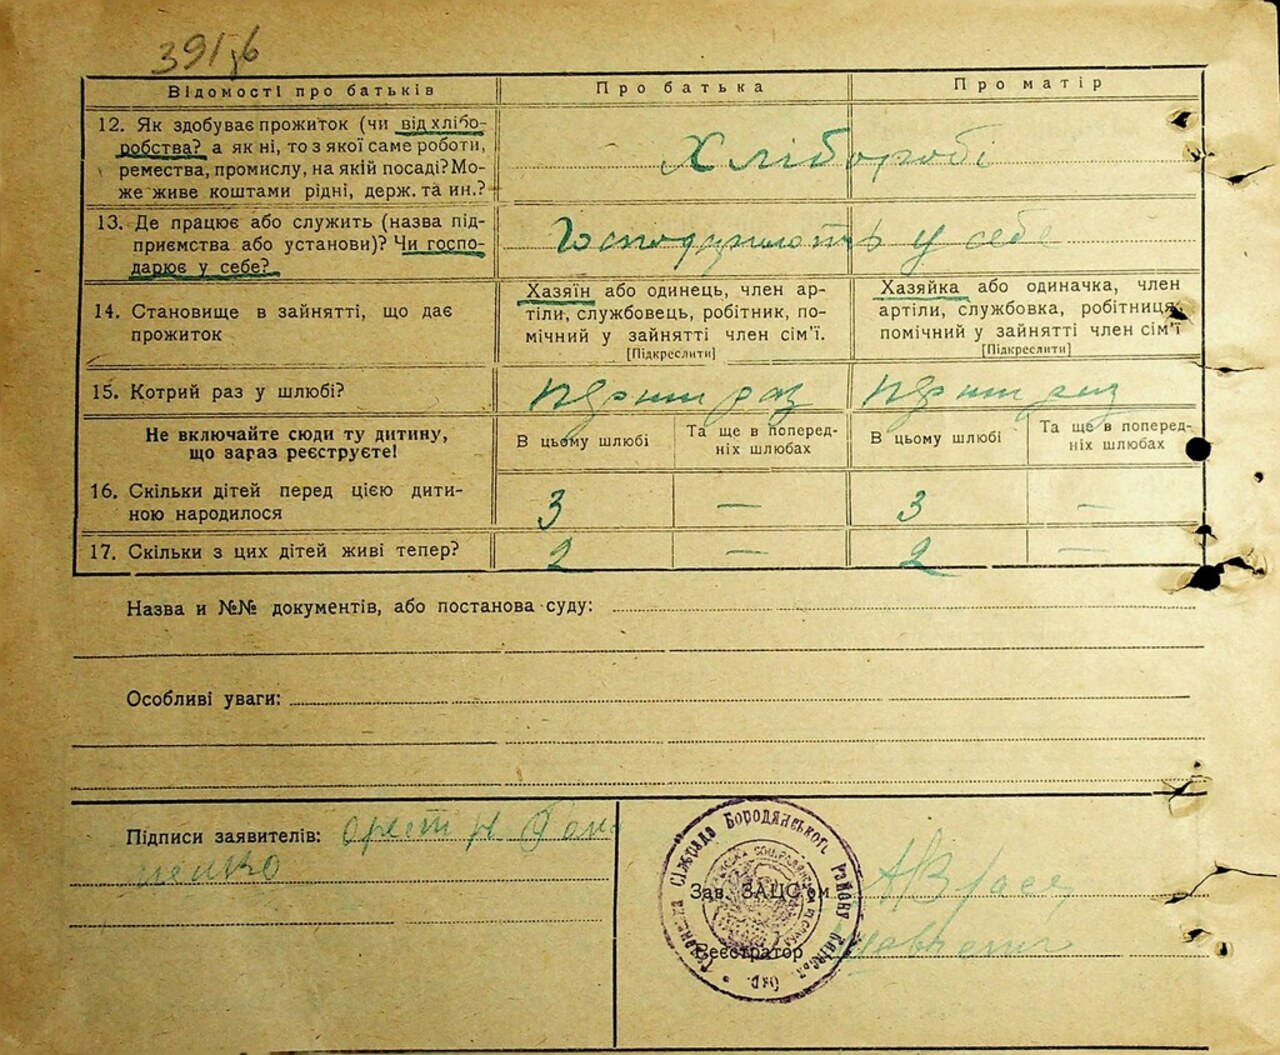 391зв
Відомості про батьків
Про батька
Про матір
12. Як здобуває прожиток (чи від хлібо-
робства? а як ні, то з якої саме роботи,
ремества, промислу, на якій посаді? Мо-
же живе коштами рідні, держ. та ин.?
Хлібороби
13. Де працює або служить (назва під-
приємства або установи)? Чи госпо-
дарює у себе?
у себе
14. Становище в зайнятті, що дає
прожиток
Хазяїн або одинець, член ар-
тіли, службовець, робітник, по-
мічний у зайнятті член сім'ї.
[Підкреслити]
Хазяйка або одиначка, член
артіли, службовка, робітниця,
помічний у зайнятті член сім'ї
[Підкреслити]
15. Котрий раз у шлюбі?
раз
раз
Не включайте сюди ту дитину,
що зараз реєструєте!
В цьому шлюбі
Та ще в поперед-
ніх шлюбах
В цьому шлюбі
Та ще в поперед-
ніх шлюбах
16. Скільки дітей перед цією дити-
ною народилося
3 — 3 —
17. Скільки з цих дітей живі тепер?
2 — 2 —
Назва и №№ документів, або постанова суду:
Особливі уваги:
Підписи заявителів:
Сільрада Бородянського Району Київськ. Окр.
Зав. ЗАЦС'ом
Реєстратор